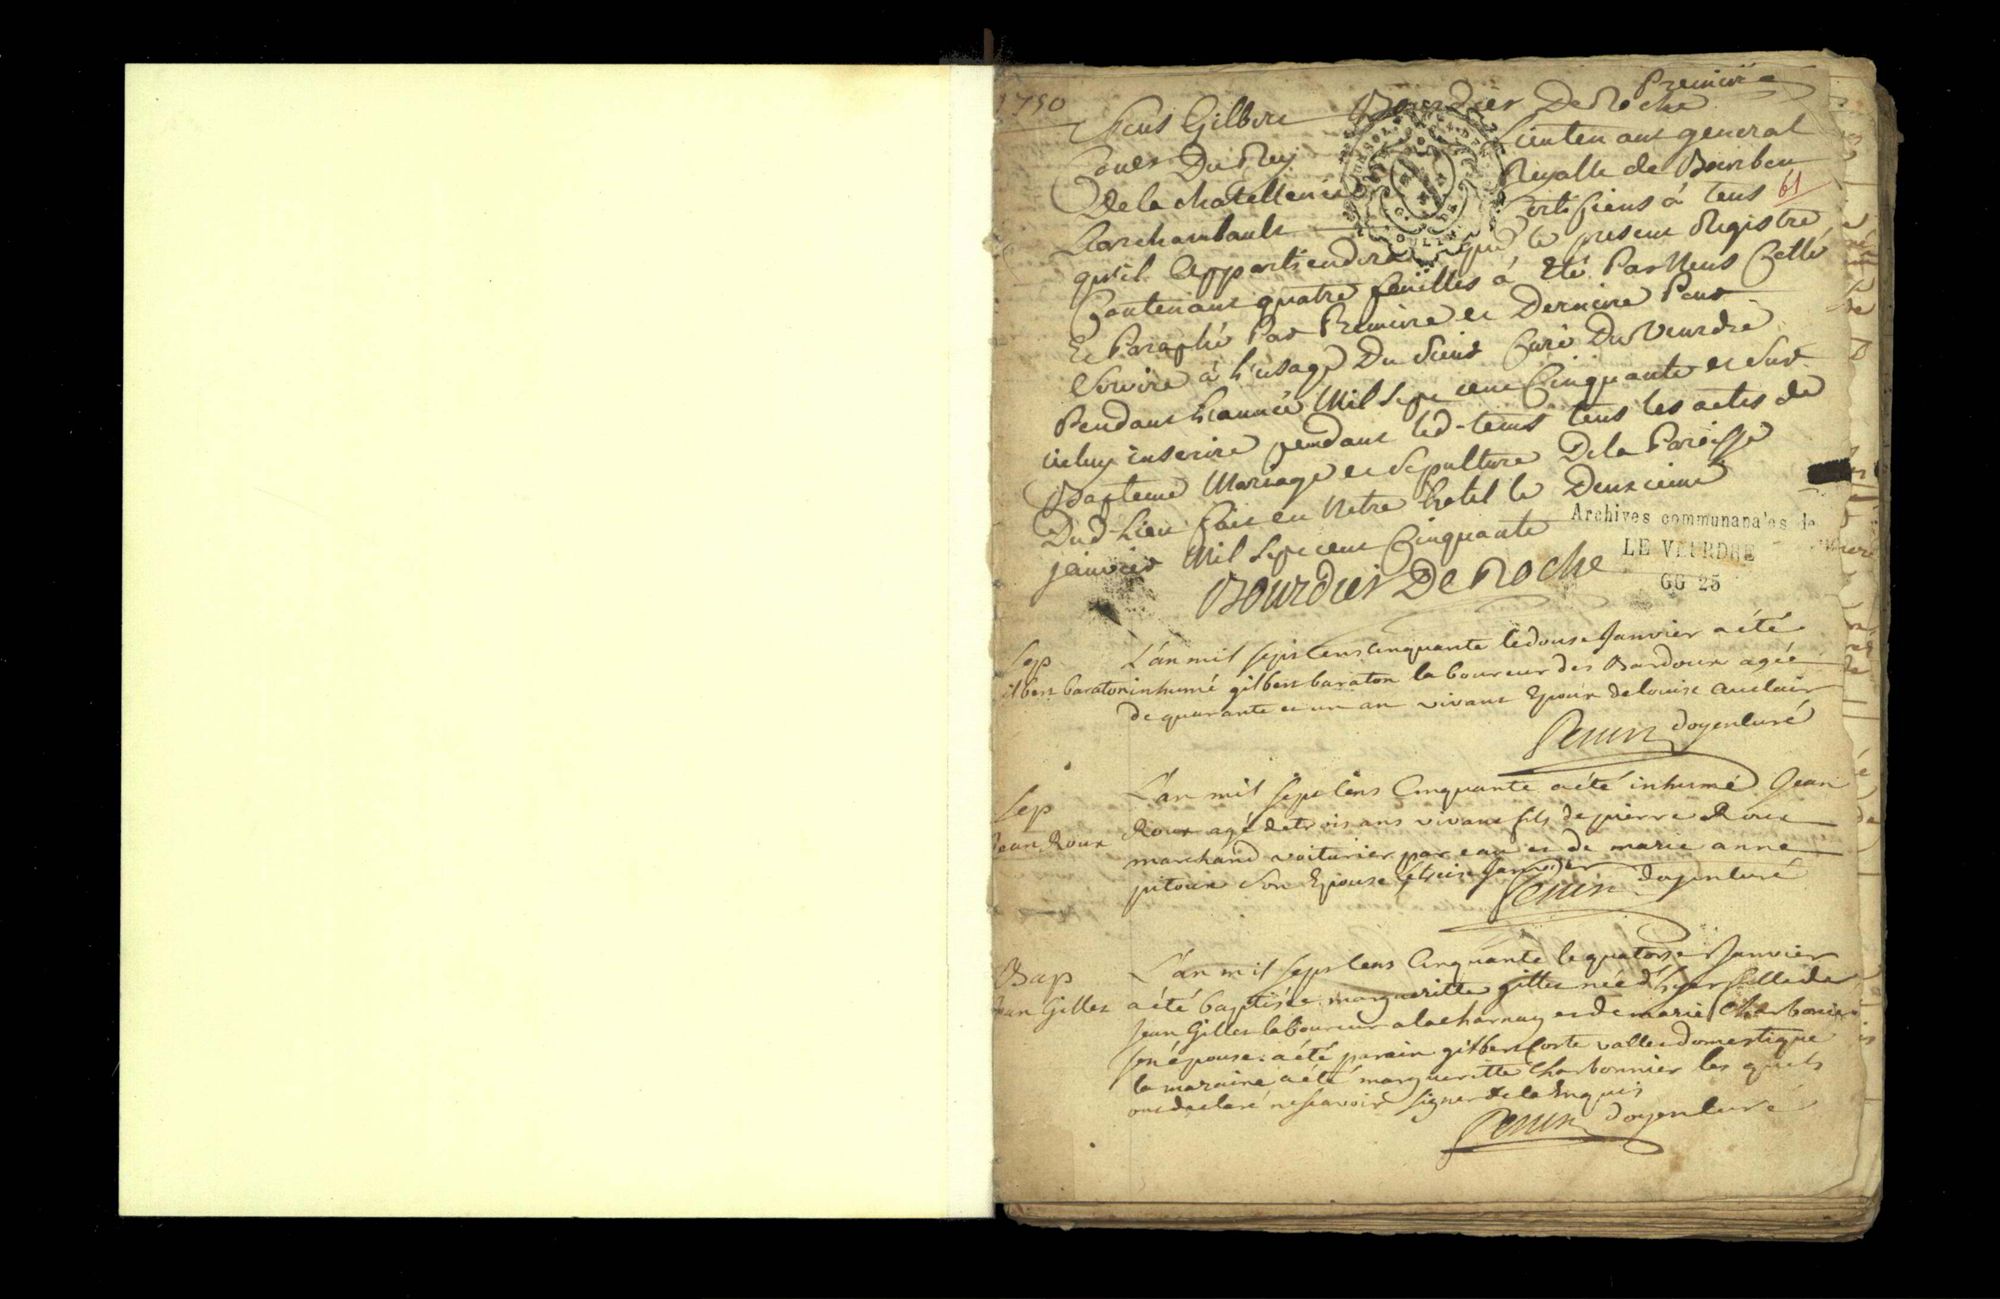 Premiere
1750
Nous Gilbert Bourdier De Roche
Coner Du Roy Lieutenant general
De la chatellenie Royalle de Bourbon
61
Larchambault Certifions à tous
qu'il appartiendra que le present Registre
Contenant quatre feuilles à Eté Par Nous Cotté
Et Paraphé Par Premiere et Derniere Pour
Servire à L'usage Du Sieur Curé Du Veurdre
Pendant L'année Mil Sept cent Cinquante et Sur
iceluy inserire pendant led. tems tous les actes de
Bapteme Mariage et Sepulture De la Paroisse
Dud. Lieu fait en Notre hotel le Deuxieme
janvier Mil Sept cent Cinquante
Archives communana'es de
LE VEURDRE
GG 25
Bourdier De Roche
Sep
ilbert baraton
L'an mil sept Cens Cinquante le douse Janvier a été
inhumé gilbert baraton laboureur des Bardoux agée
de quarante et un an vivant Epoux de louise auclair
Perrin doyen Curé
Sep
Jean Roux
L'an mil sept Cens Cinquante a été inhumé Jean
Roux agé de trois ans vivant fils de pierre Roux
marchand voiturier par eau et de marie anne
pitoux Son Epouse le treise Janvier
Perrin doyen Curé
Bap
Jean Gilles
L'an mil sept Cens Cinquante le quatorse Janvier
a été baptisée margueritte gilles née d'hyer fille de
Jean Gilles laboureur a la charnay et de marie Charbonier
son épouse a été parain gilbert Corte vallet domestique
la maraine a été margueritte Charbonnier les quels
ont declaré ne scavoir signer de ce Enquis
Perrin doyen Curé